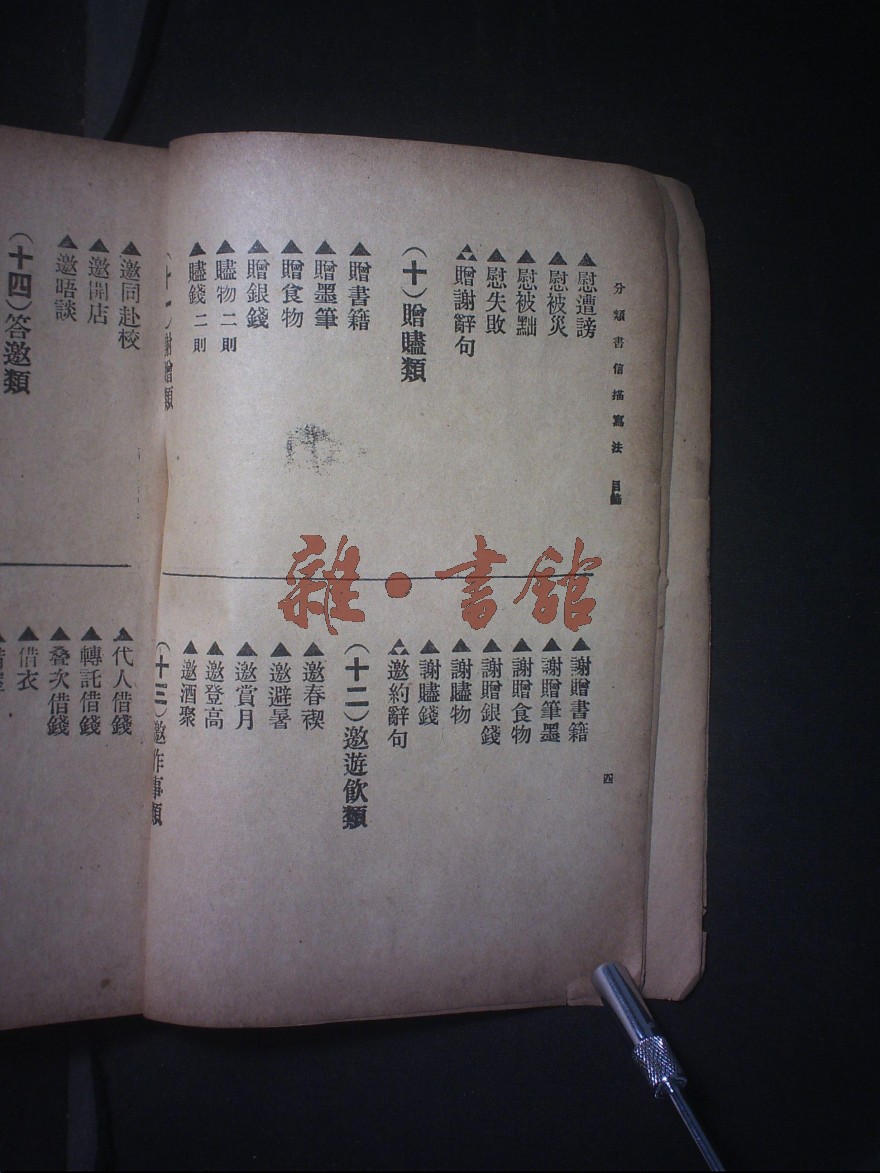 分類書信描寫法 目錄
四
▲慰遭謗
▲慰被災
▲慰被黜
▲慰失敗
贈謝辭句
(十)贈贐類
▲贈書籍
▲贈墨筆
▲贈食物
▲贈銀錢
▲贐物 二則
▲贐錢 二則
(十一)謝贈類
▲謝贈書籍
▲謝贈筆墨
▲謝贈食物
▲謝贈銀錢
▲謝贐物
▲謝贐錢
邀約辭句
(十二)邀遊飲類
▲邀春禊
▲邀避暑
▲邀賞月
▲邀登高
▲邀酒聚
(十三)邀作事類
▲邀同赴校
▲邀開店
▲邀晤談
(十四)答邀類
▲代人借錢
▲轉託借錢
▲叠次借錢
▲借衣
雜·書館